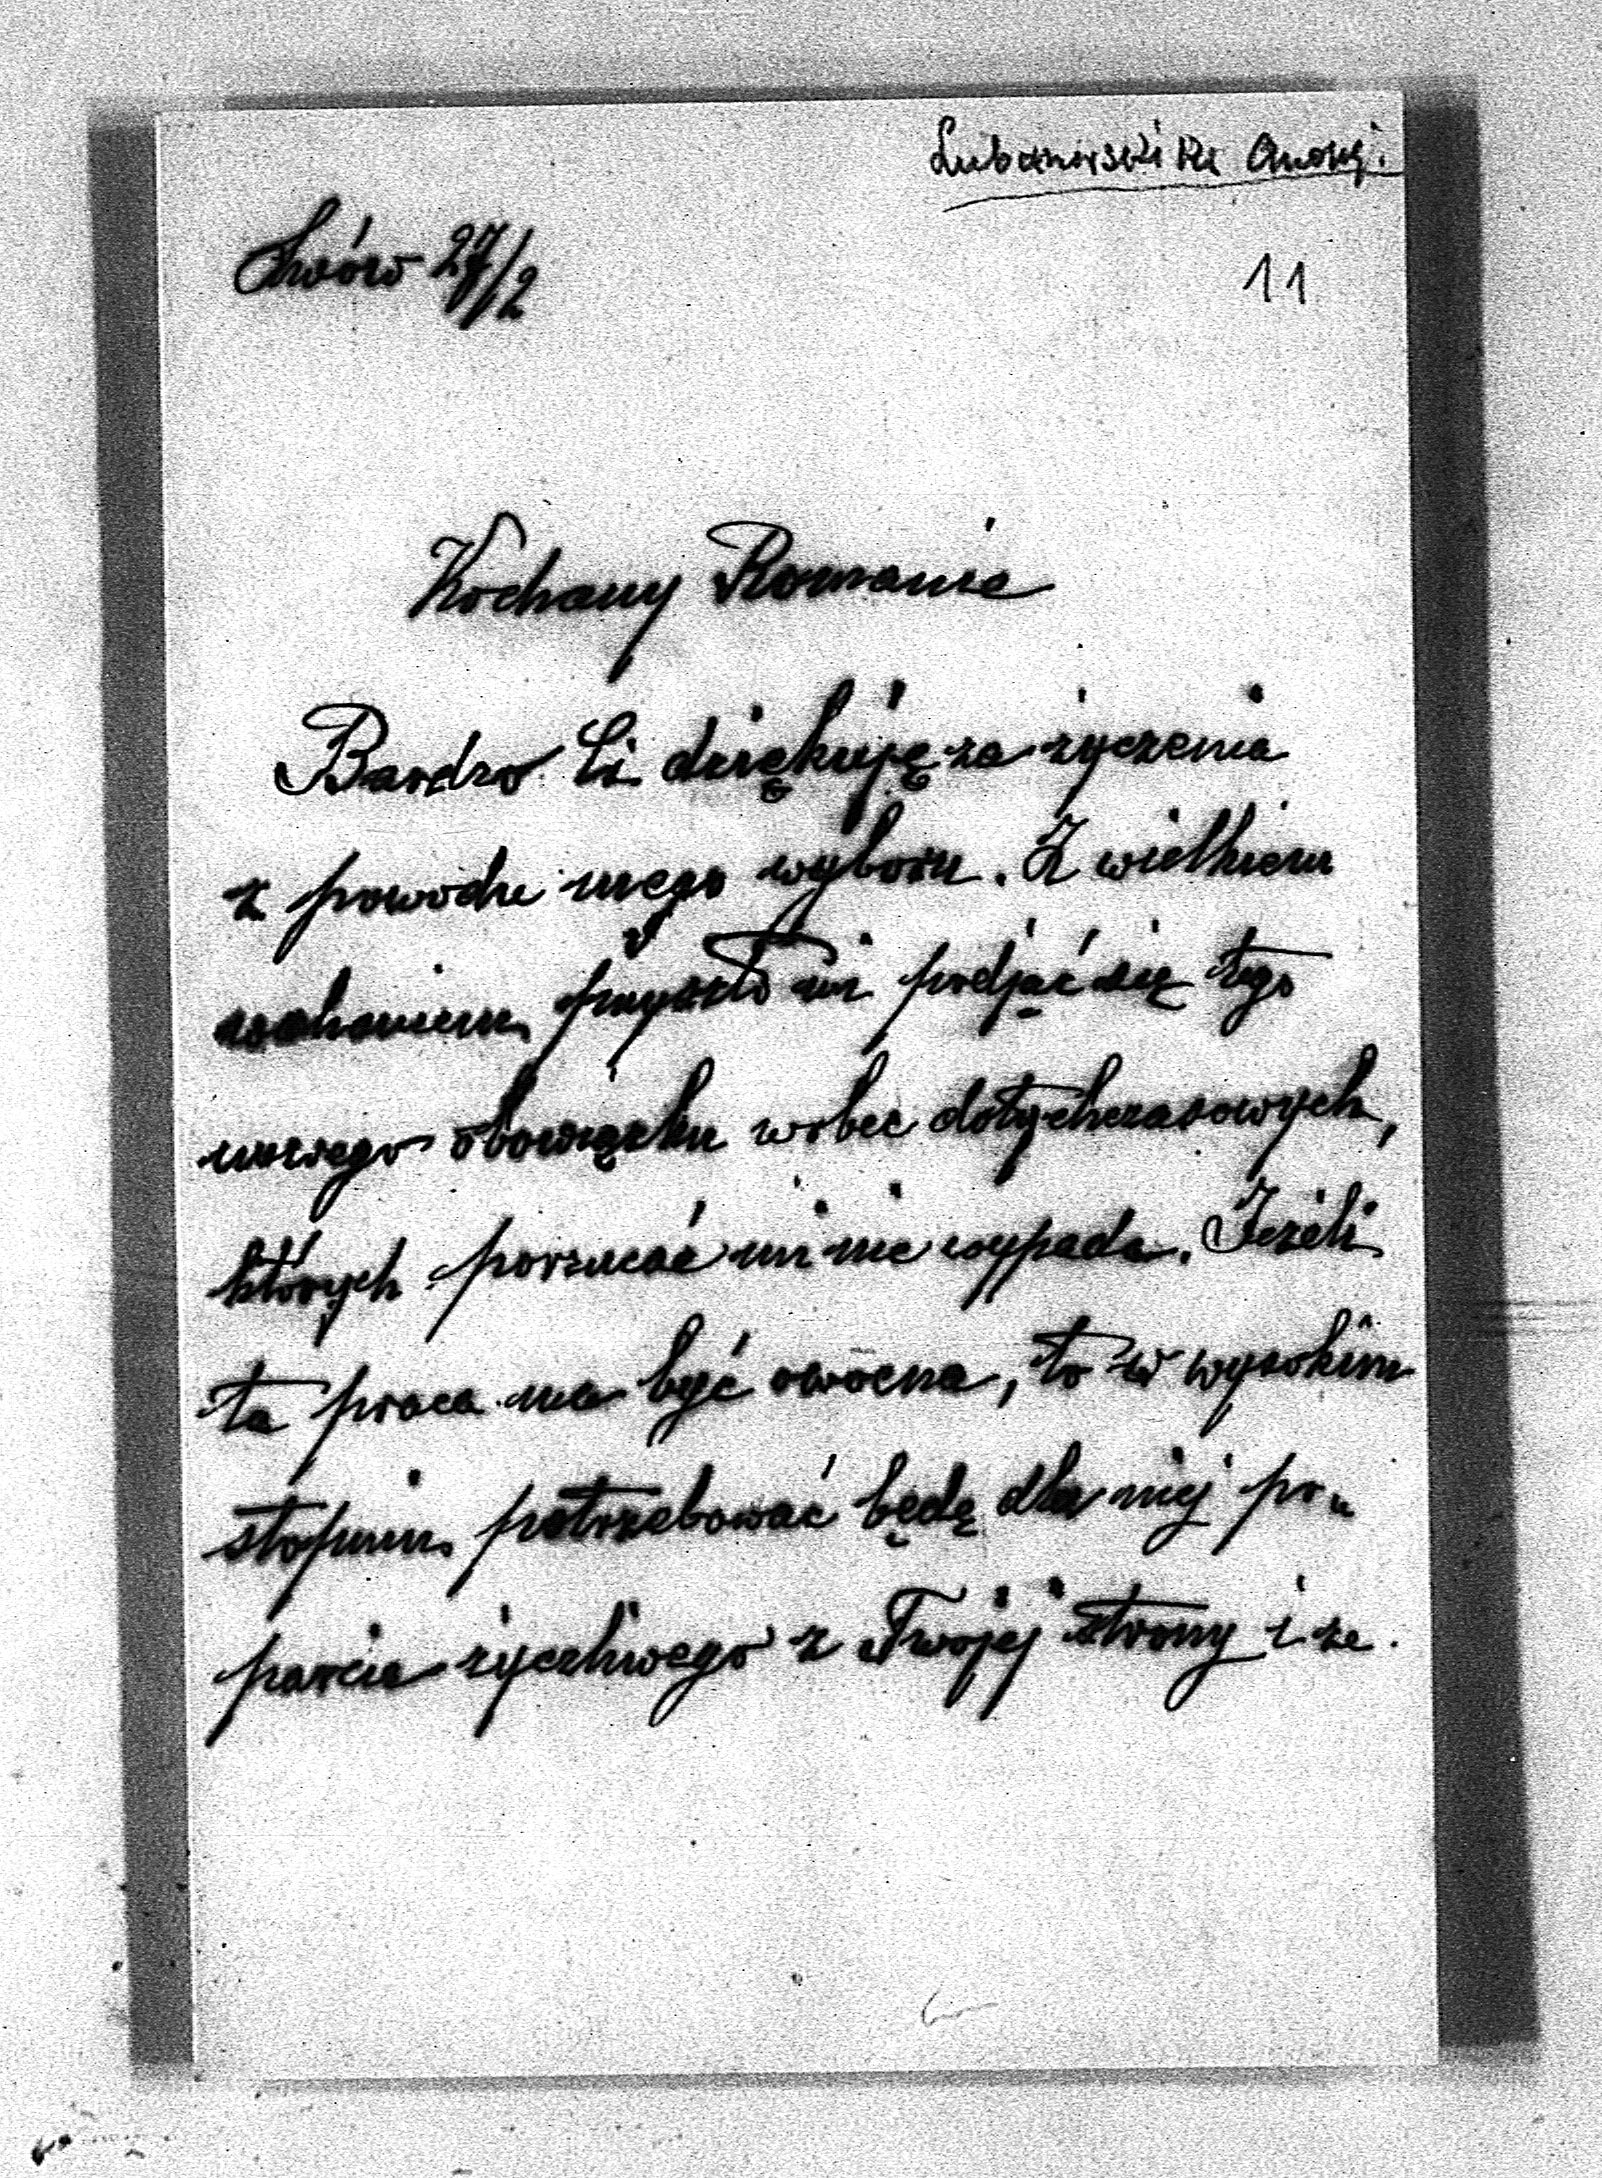 Lubomirski Ks Andrzej.
Lwów 27/2
11
Kochany Romanie
Bardzo Ci dziękuję za życzenia
z powodu mego wyboru. Z wielkiem
wahaniem przyszło mi podjąć się tego
nowego obowiązku wobec dotychczasowych,
których porzucać mi nie wypada. Jeżeli
ta praca ma być owocna, to w wysokim
stopniu potrzebować będę dla niej po„
parcia życzliwego z Twojej strony i ze